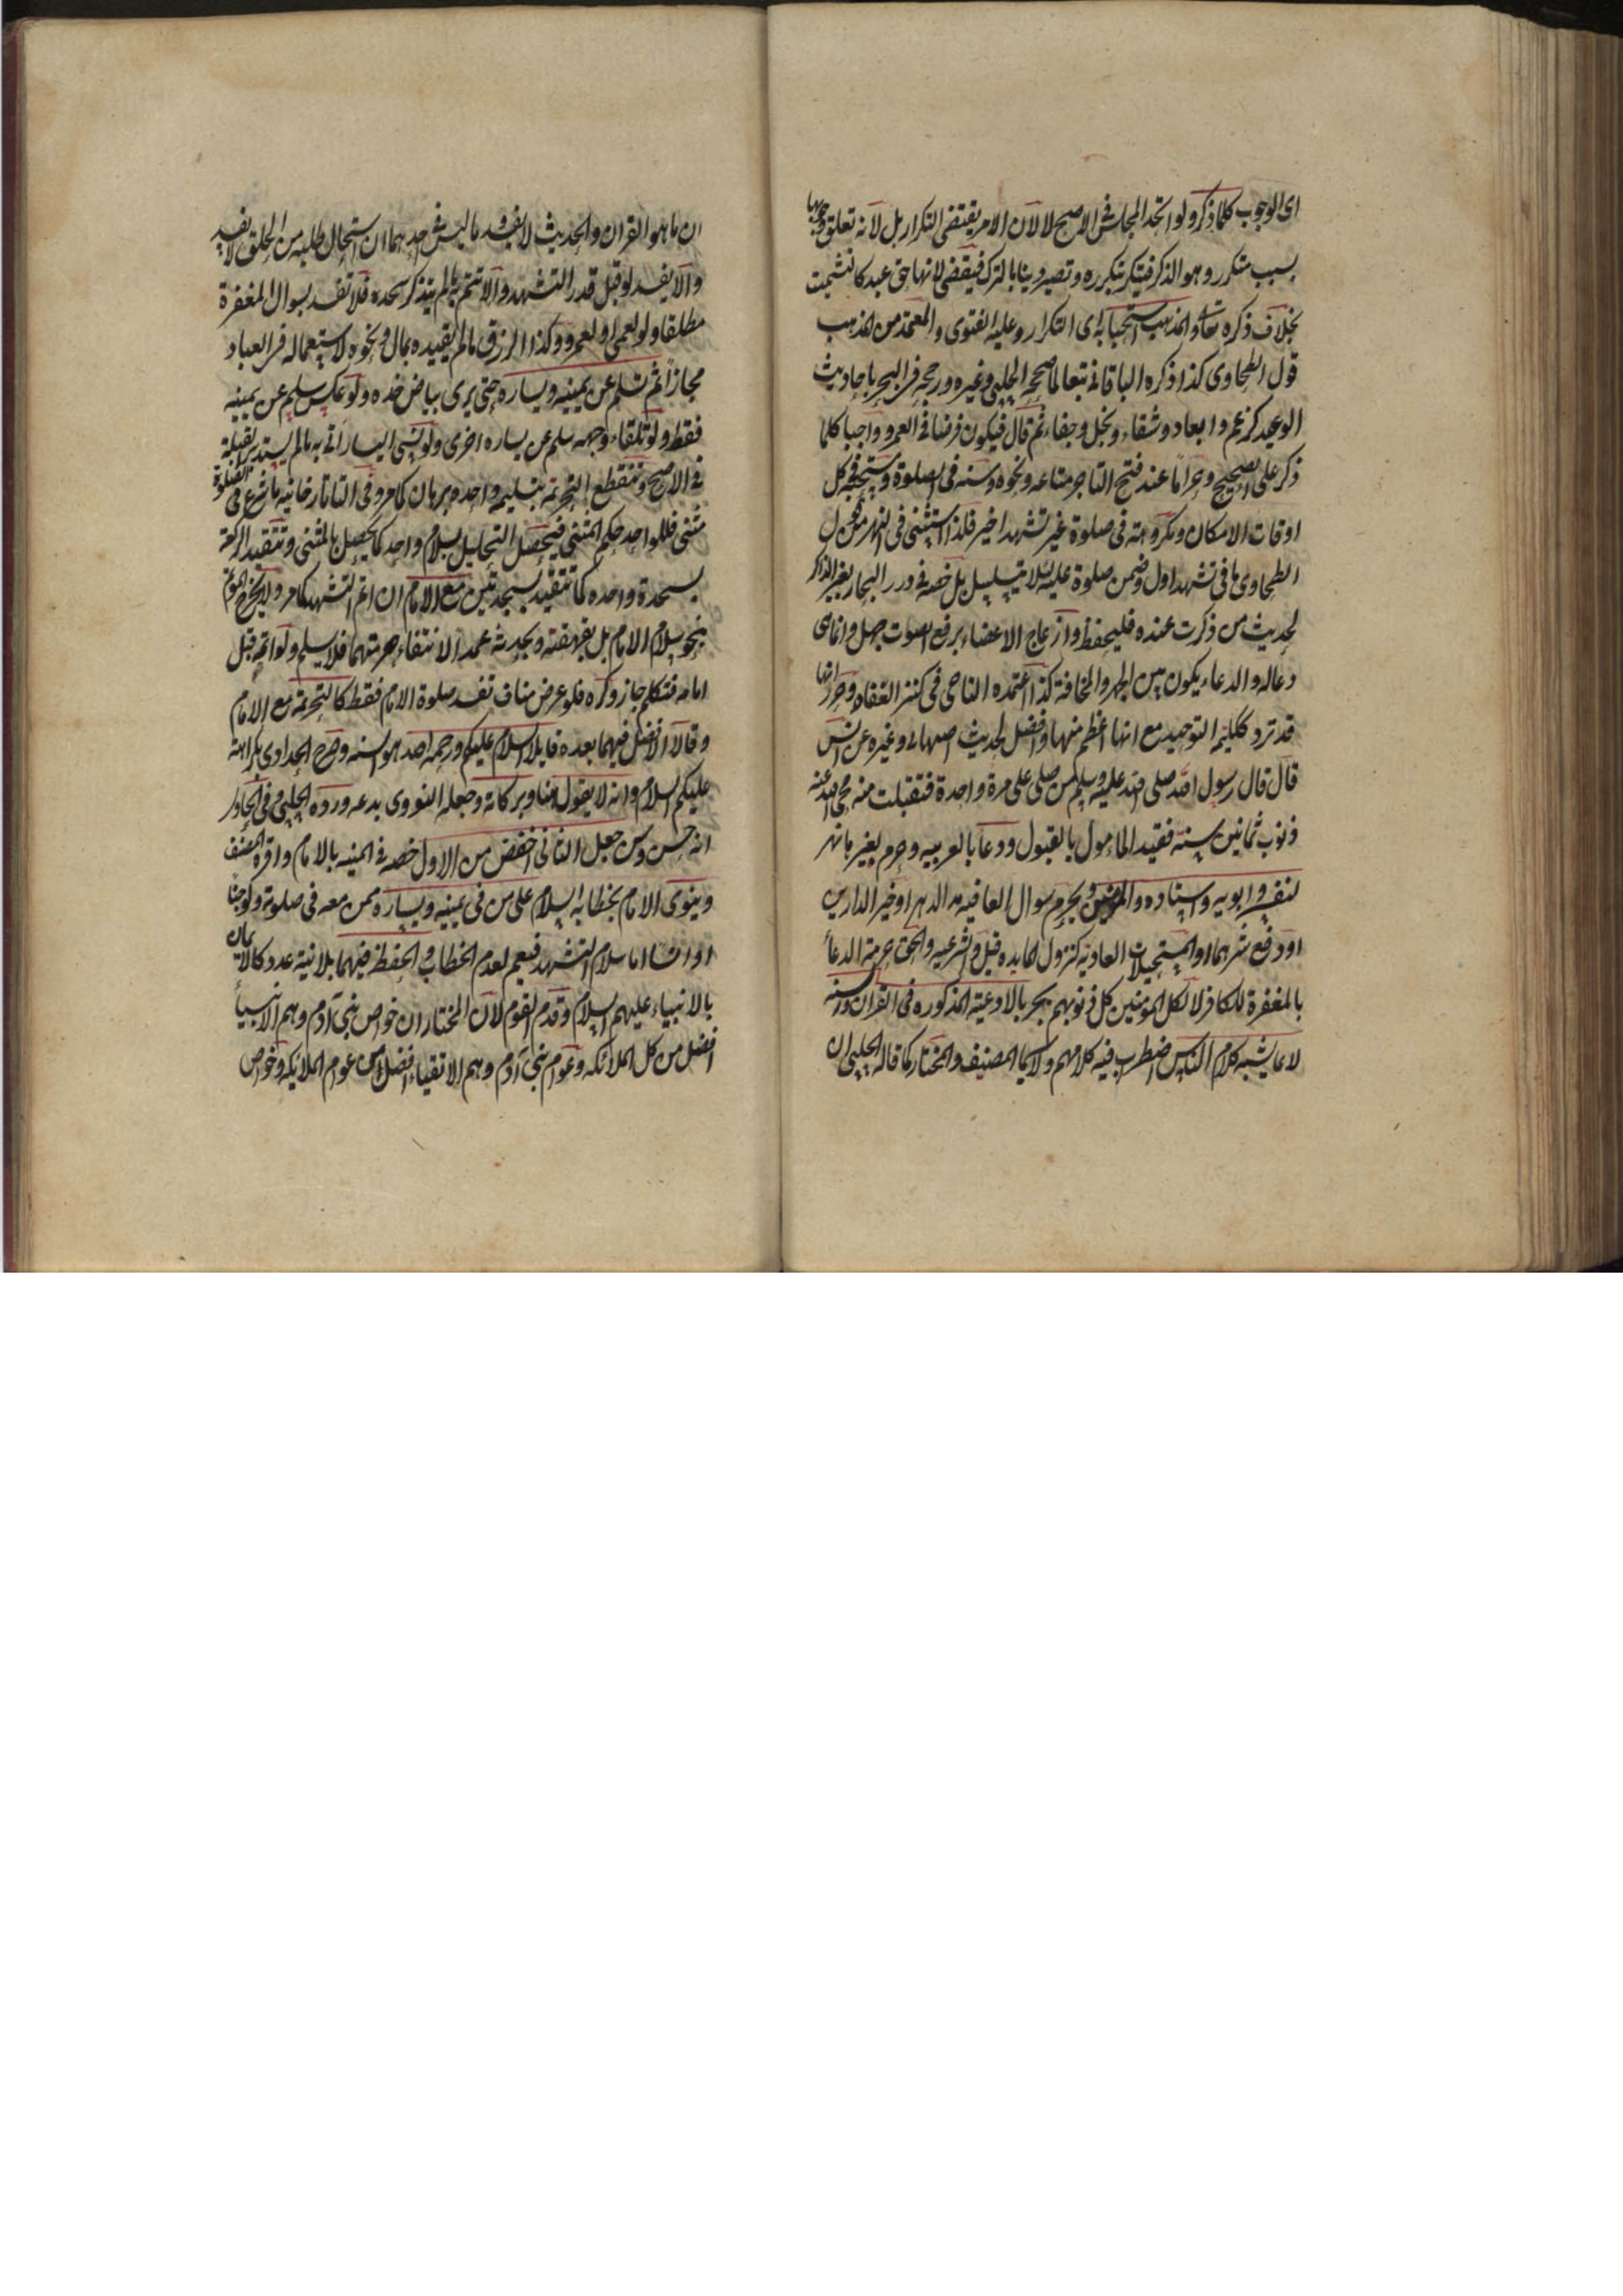 اى الوجوب كلما ذكر ولو اتحد المجلس فى الاصح لا لان الامر يقتضى التكرار بل لانه تعلق وجوبها
بسبب متكرر وهو الذكر فيتكرر بتكرره وتصير دينا بالترك فيقضى لانها حق عبد كالتشميت
بخلاف ذكره تعالى والمذهب استحبابه اى التكرار وعليه الفتوى والمعتمد من المذهب
قول الطحاوى كذا ذكره الباقانى تبعا لما صححه الحلبى وغيره ورجحه فى البحر باحاديث
الوعيد كرغم وابعاد وشقاء وبخل وجفاء ثم قال فيكون فرضا فى العمر وواجبا كلما
ذكر على الصحيح وحراما عند فتح التاجر متاعه ونحوه وسنه فى الصلوة ومستحبه فى كل
اوقات الامكان ومكروهة فى صلوة غير تشهد اخير فلذا استثنى فى النهر من قول
الطحاوى ما فى تشهد اول وضمن صلوة عليه لئلا يتسلسل بل خصه فى درر البحار بغير الذاكر
لحديث من ذكرت عنده فليحفظ وازعاج الاعضاء برفع الصوت جهل وانما هى
دعا له والدعاء يكون بين الجهر والمخافة كذا اعتمده الباجى فى كنز العفاه وحرر انها
قد ترد ككلمة التوحيد مع انها اعظم منها وافضل لحديث اصبهانى وغيره عن انس
قال قال رسول الله صلى الله عليه وسلم من صلى على مرة واحدة فتقبلت منه محى الله عنه
ذنوب ثمانين سنة فقيد المامول بالقبول ودعا بالعربيه وحرم بغيرها نهر
لنفسه وابويه واستاده والمومنين ويحرم سوال العافيه مدا الدهر او خير الدارين
او دفع شرهما او المستحيلات العادية كنزول المايده قيل والشرعيه والحق حرمة الدعأ
بالمغفرة للكافر لا لكل المومنين كل ذنوبهم بحر بالادعية المذكوره فى القران والسنه
لا بما يشبه كلام الناس اضطرب فيه كلامهم ولا سيما المصنف والمختار كما قاله الحلبى ان
ان ما هو القران والحديث لا يفسد وما ليس فى احدهما ان استحال طلبه من الخلق لا يفسد
والا يفسد لو قبل قدر التشهد والا تتم به ما لم يتذكر سجده فلا تفسد بسوال المغفرة
مطلقا ولو لعمى او لعمرو وكذا الرزق ما لم يقيده بمال ونحوه لاستعماله فى العباد
مجازاً ثم تسلم عن يمينه ويساره حتى يرى بياض خده ولو عكس سلم عن يمينه
فقط ولو تلقاء وجهه سلم عن يساره اخرى ولو نسى اليسار اتى به ما لم يستدبر القبلة
فى الاصح وتنقطع التحريمة بتسليمه واحده برهان كما مر وفى التاتارخانيه ما شرع فى الصلوة
مثنى فللواحد حكم المثنى فيحصل التحليل بسلام واحد كما يحصل بالمثنى وتتقيد الركعة
بسجدة واحده كما تتقيد بسجدتين مع الامام ان اتم التشهد كما مر ولا يخرج المؤتم
بنحو سلام الامام بل بقهقهته وبحدثه عمدا لانتفاء حرمتها فلا يسلم ولو اتمه قبل
امامه فتكلم جاز وكره فلو عرض مناف تفسد صلوة الامام فقط كالتحريمة مع الامام
وقالا الافضل فيهما بعده قايلا السلام عليكم ورحمة الله هو السنه وصرح الحدادى بكراهة
عليكم السلام وانه لا يقول هنا وبركاته وجعله النووى بدعه ورده الحلبى وفى الحاوى
انه حسن وسن جعل الثانى اخفض من الاول خصه فى المنيه بالامام واقره المصنف
وينوى الامام بخطابه السلام على من فى يمينه ويساره ممن معه فى صلوته ولو جنا
او انسا اما سلام التشهد فيعم لعدم الخطاب والحفظة فيهما بلا نية عدد كالايمان
بالانبياء عليهم السلام وقدم القوم لان المختار ان خواص بنى آدم وهم الانبيأ
افضل من كل الملائكه وعوام بنى آدم وهم الاتقياء افضل من عوام الملايكه وخواص